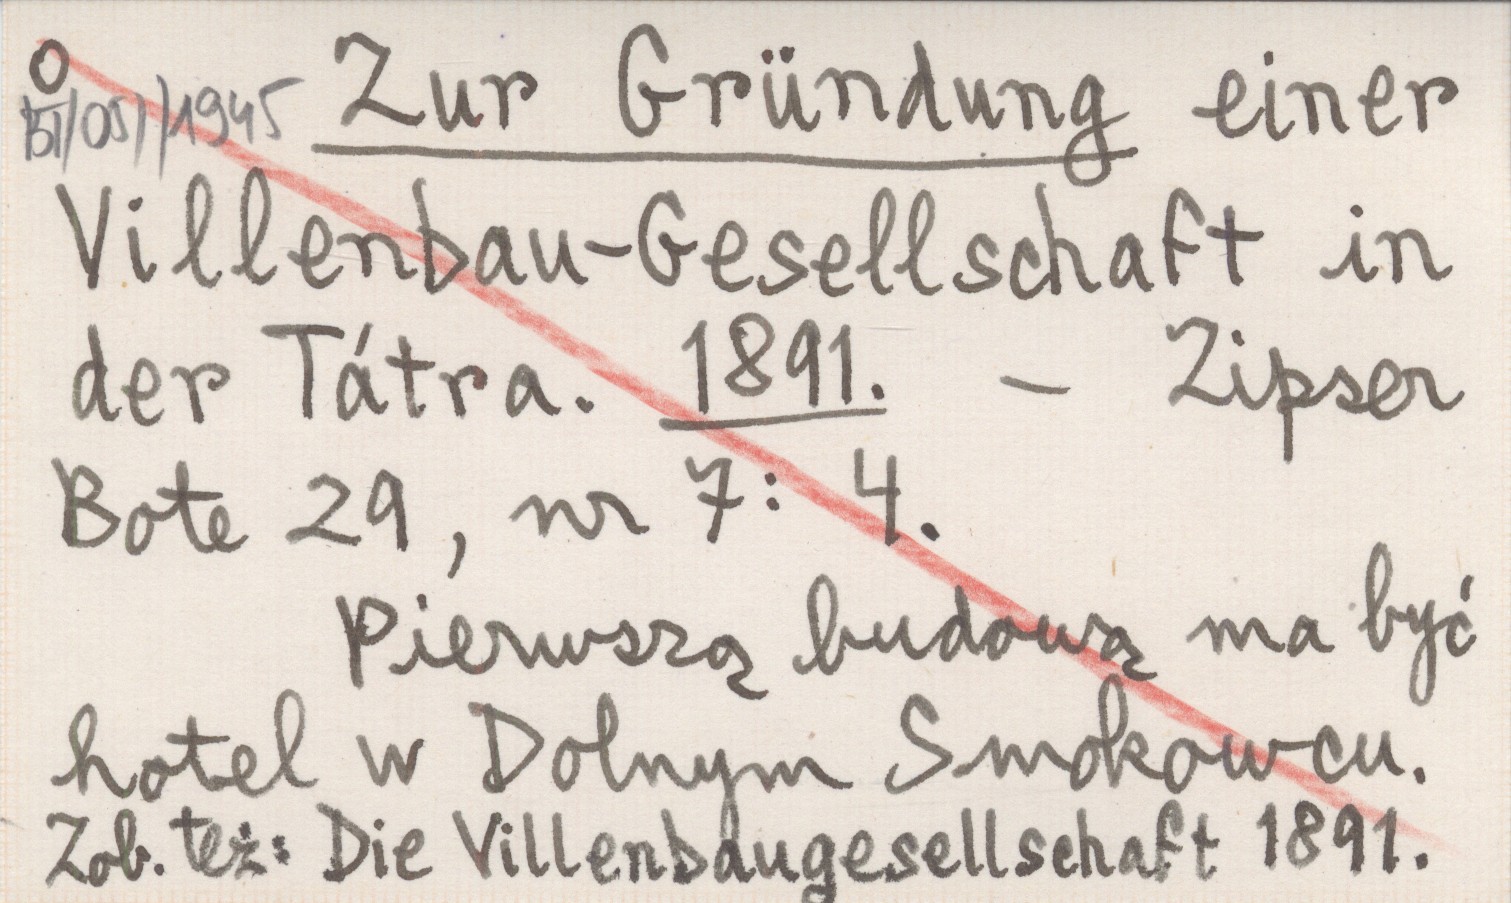 O
Zur Gründung einer
Villenbau-Gesellschaft in
der Tátra. 1891. – Zipser
Bote 29, nr 7: 4.
Pierwszą budową ma być
hotel w Dolnym Smokowcu.
Zob. też: Die Villenbaugesellschaft 1891.